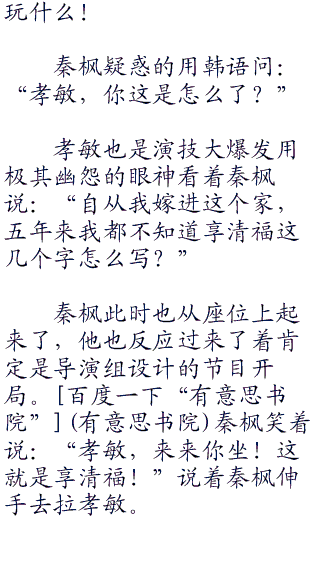 玩什么！
秦枫疑惑的用韩语问：
“孝敏，你这是怎么了？”
孝敏也是演技大爆发用
极其幽怨的眼神看着秦枫
说：“自从我嫁进这个家，
五年来我都不知道享清福这
几个字怎么写？”
秦枫此时也从座位上起
来了，他也反应过来了着肯
定是导演组设计的节目开
局。[百度一下“有意思书
院”](有意思书院)秦枫笑着
说：“孝敏，来来你坐！这
就是享清福！”说着秦枫伸
手去拉孝敏。